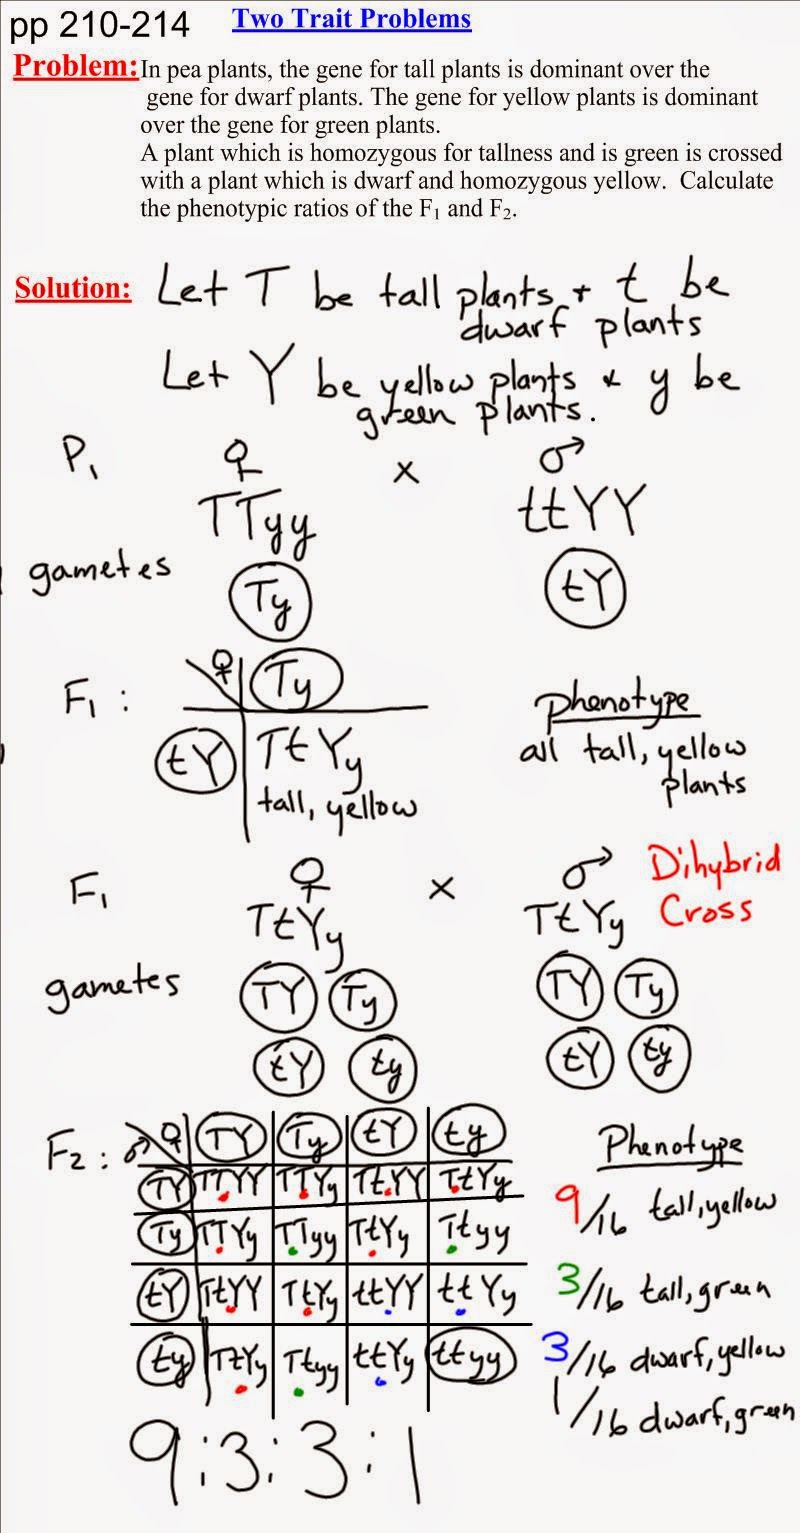 pp 210-214 Two Trait Problems
Problem: In pea plants, the gene for tall plants is dominant over the
gene for dwarf plants. The gene for yellow plants is dominant
over the gene for green plants.
A plant which is homozygous for tallness and is green is crossed
with a plant which is dwarf and homozygous yellow. Calculate
the phenotypic ratios of the F₁ and F₂.
Solution: Let T be tall plants + t be
dwarf plants
Let Y be yellow plants & y be
green plants.
P₁ ♀ x ♂
TTyy ttYY
gametes Ty tY
F₁ : ♀ Ty
tY TtYy
tall, yellow
phenotype
all tall, yellow
plants
F₁ ♀ x ♂
TtYy TtYy
Dihybrid
Cross
gametes TY Ty TY Ty
tY ty tY ty
F₂ : ♂ ♀ TY Ty tY ty
TY TTYY TTYy TtYY TtYy
Ty TTYy TTyy TtYy Ttyy
tY TtYY TtYy ttYY ttYy
ty TtYy Ttyy ttYy ttyy
Phenotype
9/16 tall, yellow
3/16 tall, green
3/16 dwarf, yellow
1/16 dwarf, green
9:3:3:1